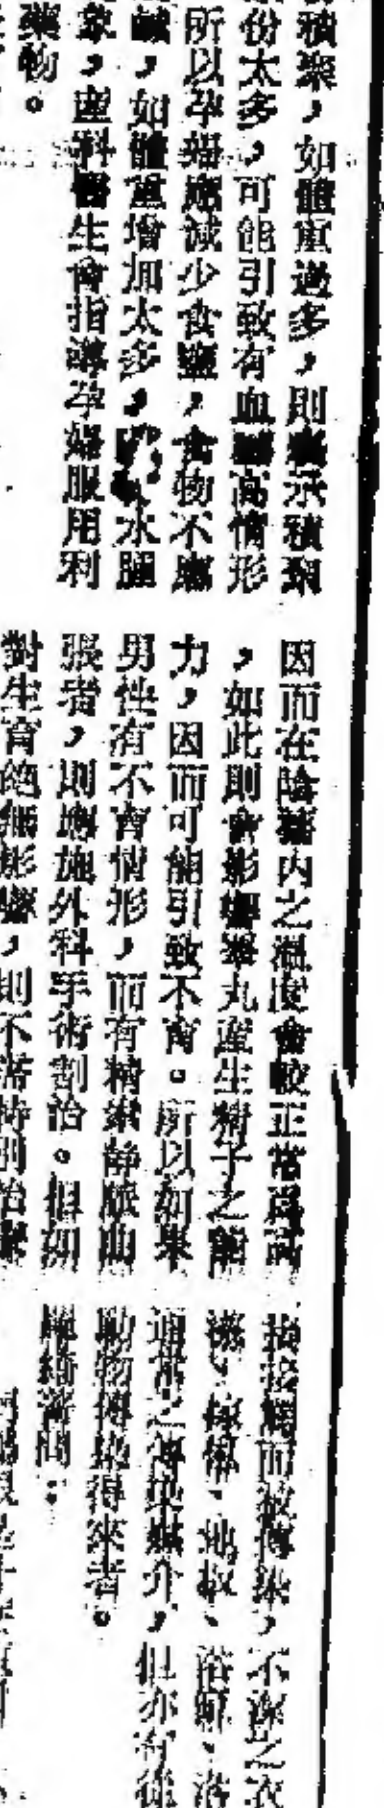 積聚，如體重過多，則表示積聚
份太多，可能引致有血壓高情形
所以孕婦應減少食鹽，食物不應
鹹，如體重增加太多，水腫
象，產科醫生會指導孕婦服用利
藥物。
因而在陰囊內之溫度會較正常爲高
，如此則會影響睪丸產生精子之能
力，因而可能引致不育。所以如果
男性有不育情形，而有精索靜脈曲
張者，則應施外科手術割治。但如
對生育絕無影響，則不需特別治療
接接觸而被傳染，不潔之衣
傢俬、地板、浴
通常之傳染媒介，但亦有從
動物傳染得來者。